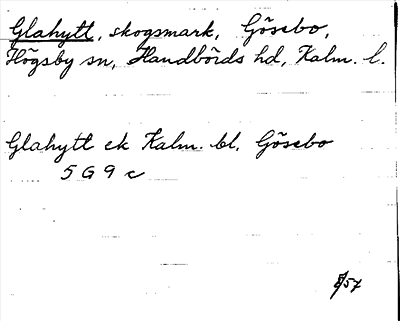 Glahytt, skogsmark, Gösebo,
Högsby sn, Handbörds hd, Kalm. l.
Glahytt ek Kalm. bl. Gösebo
5 G 9 c